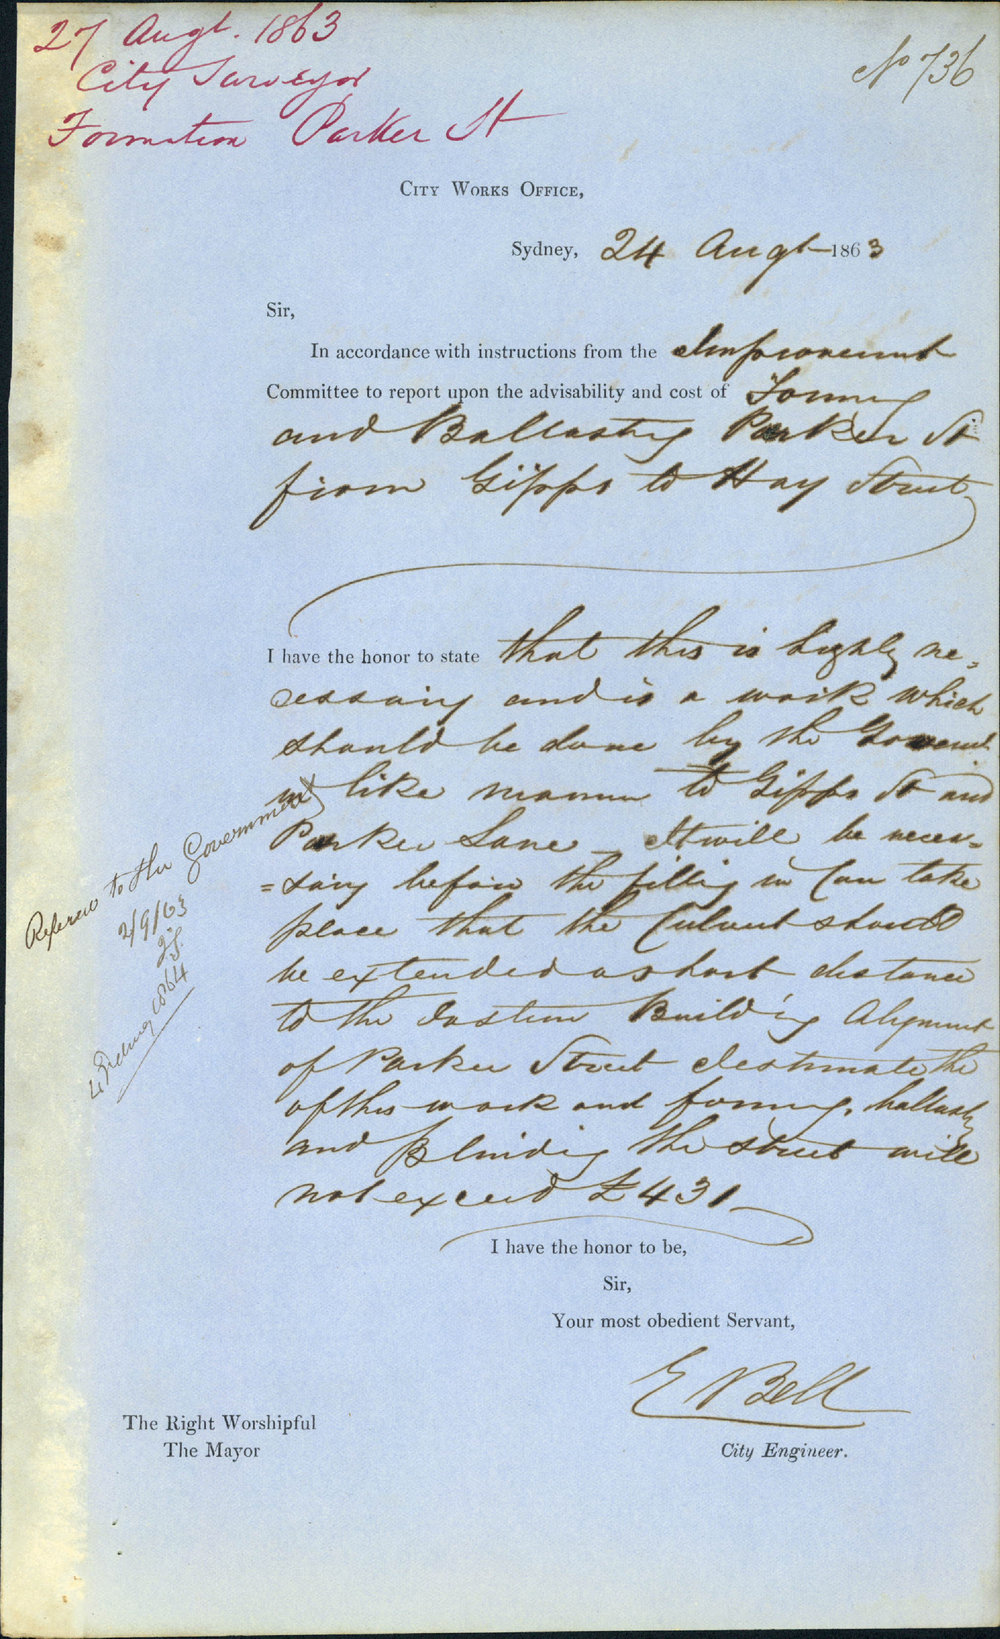 27 Augt. 1863
City Surveyor
Formation Parker St
No 736
City Works Office,
Sydney, 24 Augt 1863
Sir,
In accordance with instructions from the Improvement
Committee to report upon the advisability and cost of Forming
and Ballasting Parker St
from Gipps to Hay Street
I have the honor to state that this is highly ne=
cessary and is a work which
should be done by the Goverment
in like manner to Gipps St and
Parker Lane – It will be neces=
=sary before the filling in can take
place that the Culvert should
be extended a short distance
to the Eastern Building Alignment
of Parker Street I estimate the
of this work and forming, ballasting
and Blinding the street will
not exceed £431
I have the honor to be,
Sir,
Your most obedient Servant,
E Bell
City Engineer.
The Right Worshipful
The Mayor
Refered to the Government
2/9/63
1864